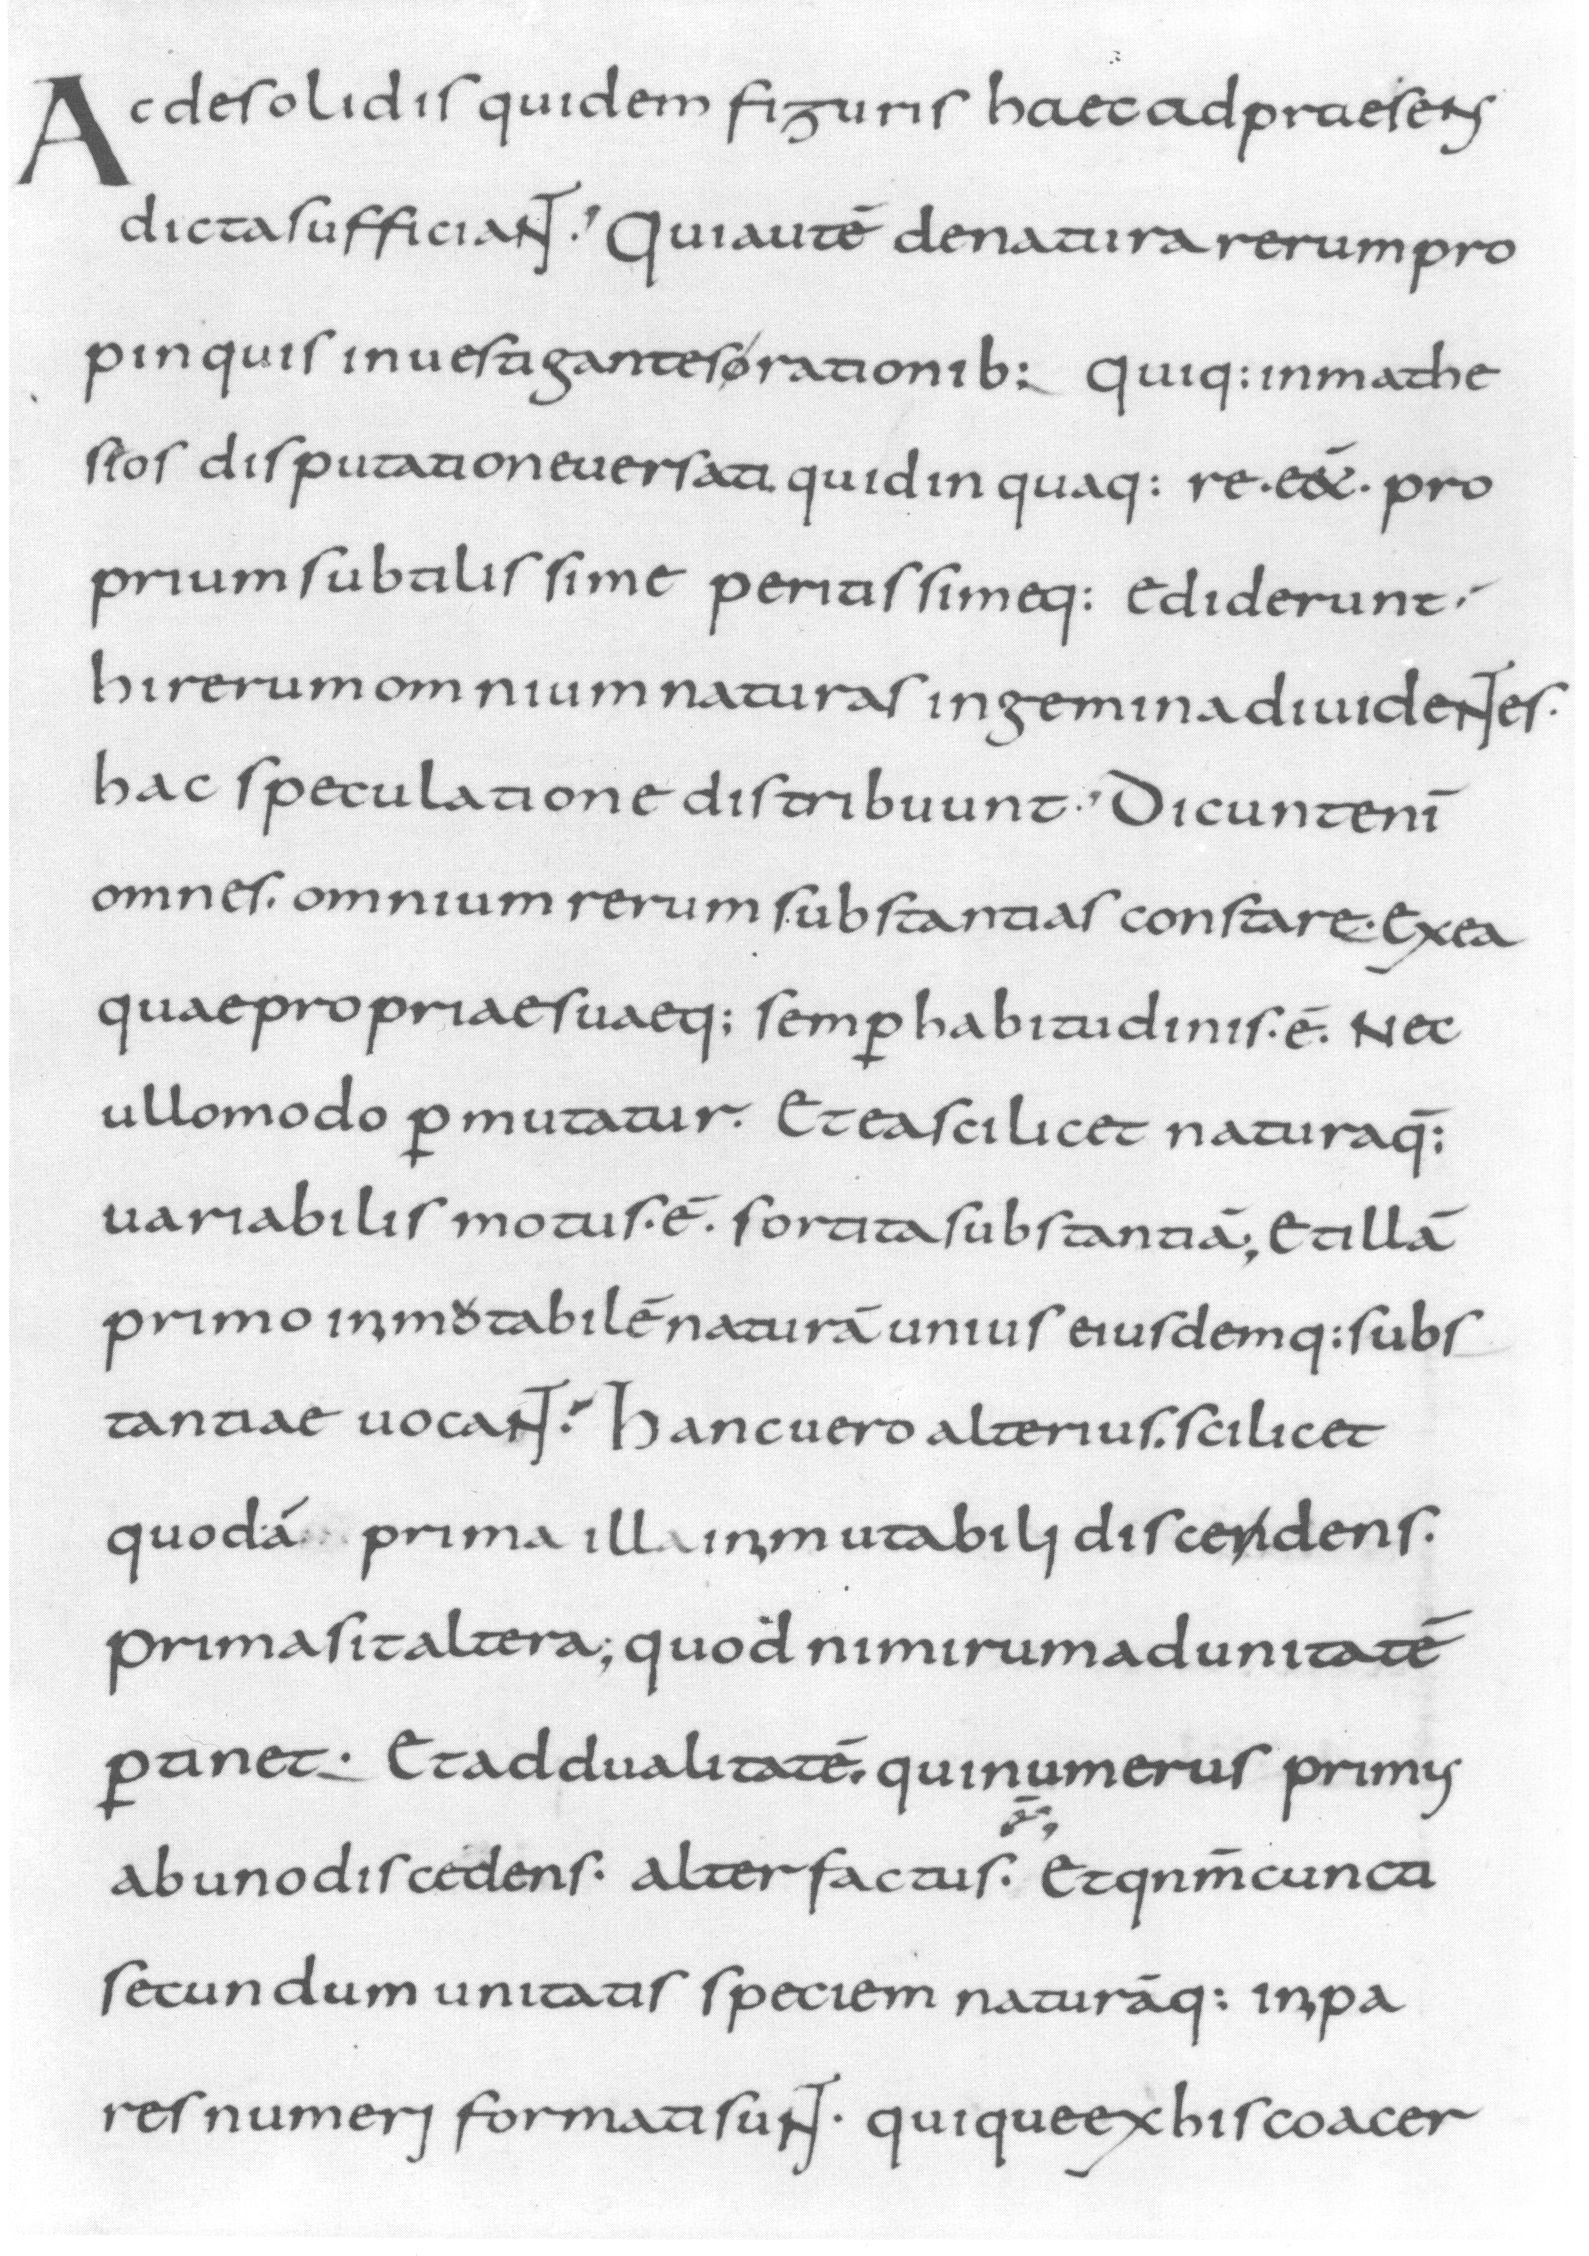 Ac de solidis quidem figuris haec ad praesens
dicta sufficiant. Qui autē de natura rerum pro
pinquis inuestigantes orationib; Quiq: in mathe
seos disputatione uersati quid in quaq: re. eēt. pro
prium subtilissime peritissimeq: ediderunt.
hi rerum omnium naturas in gemina diuidentes.
hac speculatione distribuunt. Dicunt enī
omnes. omnium rerum substantias constare. Ex ea
quae propriae suaeq; semꝑ habitudinis. ē. Nec
ullo modo ꝑmutatur. Et ea scilicet natura q̄;
uariabilis motus. ē. sortita substantiā; Et illā
primo inmutabilē naturā unius eiusdemq: subs
tantiae uocant. Hanc uero alterius. scilicet
quod á prima illa inmutabili discendens.
prima sit altera; quod nimirum ad unitatē
ꝑtinet. Et ad dualitatē. qui numerus primus
ab uno discedens. alter factus. ē; Et qnm̄ cuncti
secundum unitatis speciem naturāq: inpa
res numeri formati sunt. quique ex his coacer